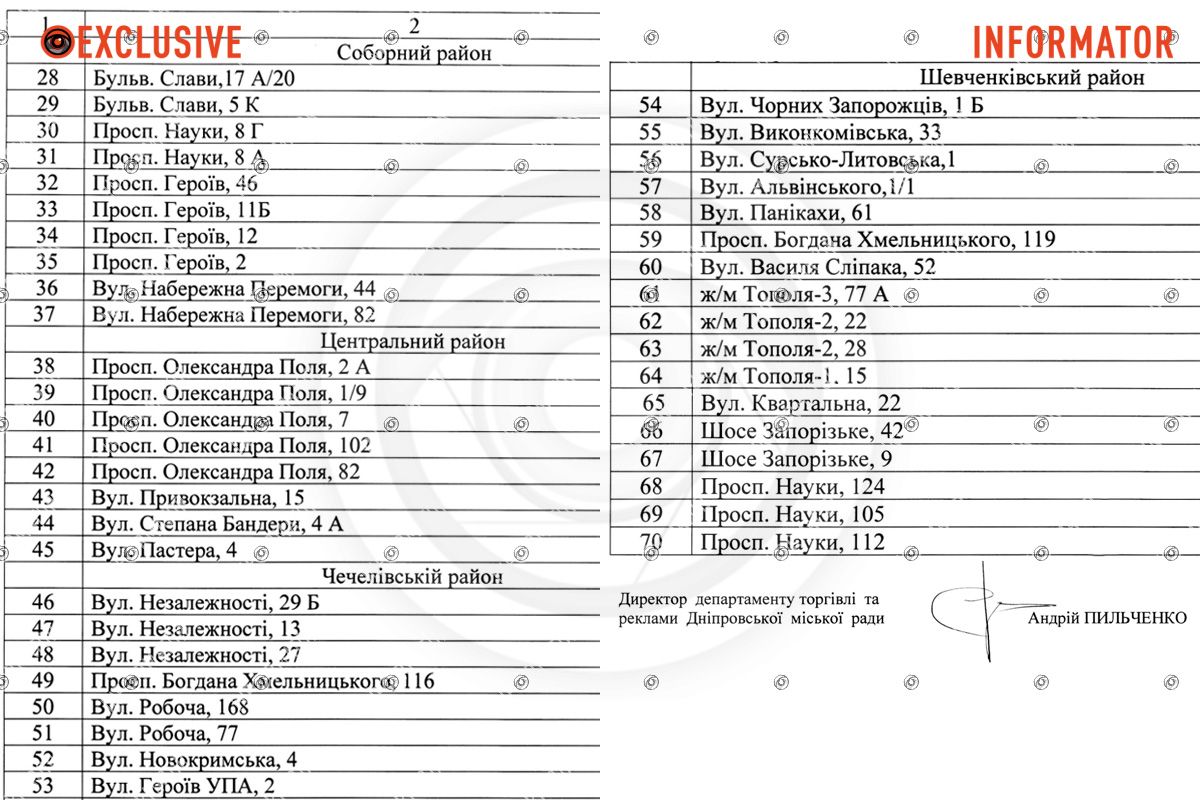 1 2
EXCLUSIVE
Соборний район
28 Бульв. Слави,17 А/20
29 Бульв. Слави, 5 К
30 Просп. Науки, 8 Г
31 Просп. Науки, 8 А
32 Просп. Героїв, 46
33 Просп. Героїв, 11Б
34 Просп. Героїв, 12
35 Просп. Героїв, 2
36 Вул. Набережна Перемоги, 44
37 Вул. Набережна Перемоги, 82
Центральний район
38 Просп. Олександра Поля, 2 А
39 Просп. Олександра Поля, 1/9
40 Просп. Олександра Поля, 7
41 Просп. Олександра Поля, 102
42 Просп. Олександра Поля, 82
43 Вул. Привокзальна, 15
44 Вул. Степана Бандери, 4 А
45 Вул. Пастера, 4
Чечелівській район
46 Вул. Незалежності, 29 Б
47 Вул. Незалежності, 13
48 Вул. Незалежності, 27
49 Просп. Богдана Хмельницького, 116
50 Вул. Робоча, 168
51 Вул. Робоча, 77
52 Вул. Новокримська, 4
53 Вул. Героїв УПА, 2
INFORMATOR
Шевченківський район
54 Вул. Чорних Запорожців, 1 Б
55 Вул. Виконкомівська, 33
56 Вул. Сурсько-Литовська,1
57 Вул. Альвінського,1/1
58 Вул. Панікахи, 61
59 Просп. Богдана Хмельницького, 119
60 Вул. Василя Сліпака, 52
61 ж/м Тополя-3, 77 А
62 ж/м Тополя-2, 22
63 ж/м Тополя-2, 28
64 ж/м Тополя-1, 15
65 Вул. Квартальна, 22
66 Шосе Запорізьке, 42
67 Шосе Запорізьке, 9
68 Просп. Науки, 124
69 Просп. Науки, 105
70 Просп. Науки, 112
Директор департаменту торгівлі та
реклами Дніпровської міської ради Андрій ПИЛЬЧЕНКО